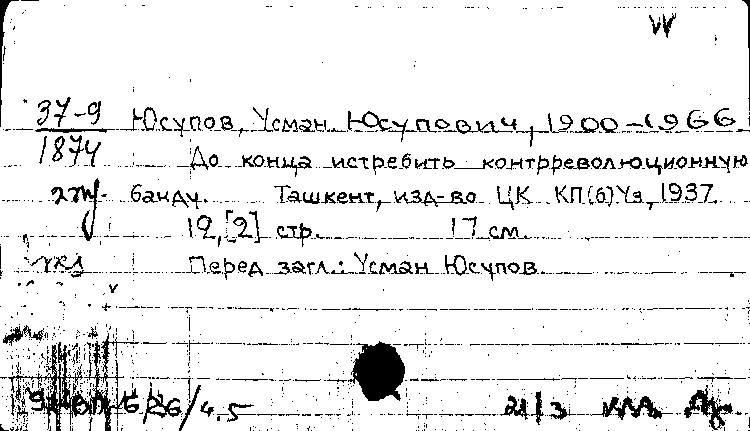 37-9 Юсупов, Усман Юсупович, 1900-1966.
1874 До конца истребить контрреволюционную
банду. Ташкент, изд-во ЦК КП(б)Уз, 1937.
12, [2] стр. 17 см.
Перед загл.: Усман Юсупов.
21/3